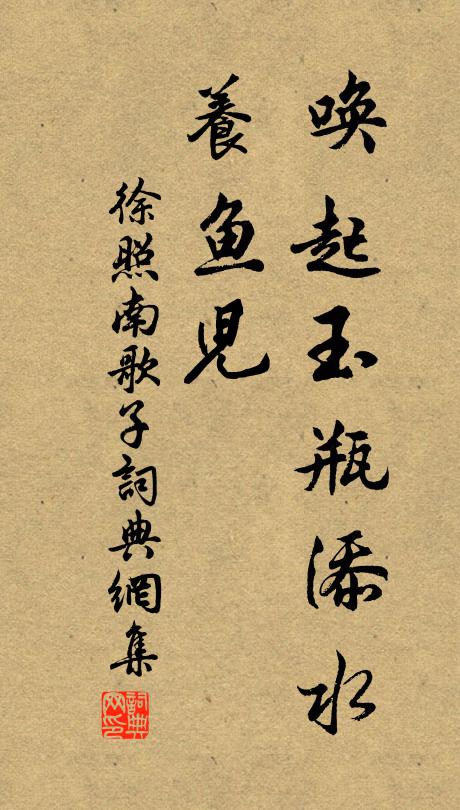 喚起玉瓶添水
養魚兒
徐照南歌子詞典網集
詞典网印